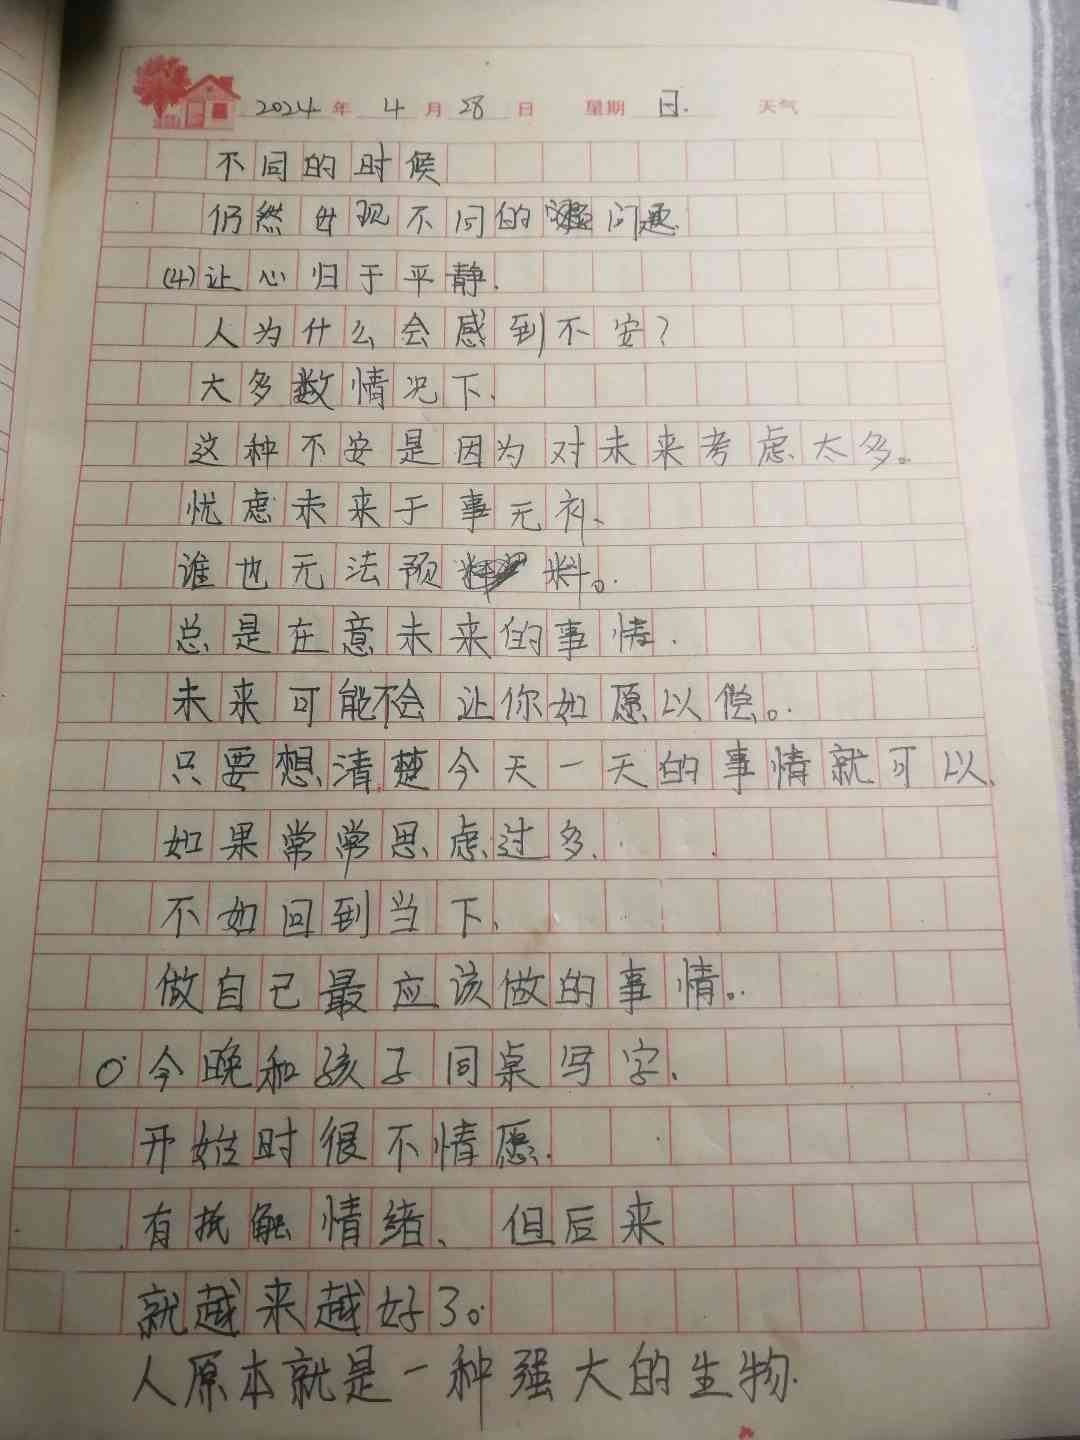 2024年4月28日 星期日. 天气
不同的时候
仍然出现不同的问题.
(4)让心归于平静.
人为什么会感到不安?
大多数情况下.
这种不安是因为对未来考虑太多。
忧虑未来于事无补、
谁也无法预料。
总是在意未来的事情.
未来可能不会让你如愿以偿。
只要想清楚今天一天的事情就可以.
如果常常思虑过多、
不如回到当下、
做自己最应该做的事情。
○今晚和孩子同桌写字、
开始时很不情愿.
有抵触情绪、但后来
就越来越好了。
人原本就是一种强大的生物.